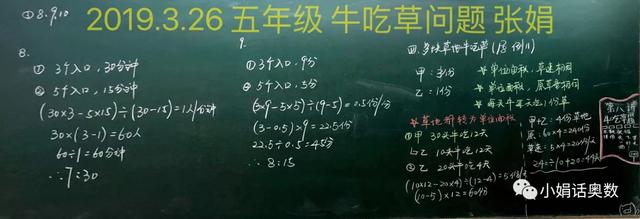 2019.3.26 五年级 牛吃草问题 张娟
① 8.9.10
8.
① 3个入口,30分钟
② 5个入口,15分钟
(30×3-5×15)÷(30-15)=1人/分钟
30×(3-1)=60人
60÷1=60分钟
∴7:30
9.
① 3个入口,9分
② 5个入口,5分
(3×9-5×5)÷(9-5)=0.5份/分
(3-0.5)×9=22.5份
22.5÷0.5=45分
∴ 8:15
四、多块草地牛吃草(137 例11)
甲:3份
乙:1份
* 单位面积,草速相同
* 单位面积,原草量相同
* 每头牛每天吃1份草
* 草地都转为单位面积
①甲 30头牛吃12天
乙 10头牛吃12天
②乙 20头牛吃4天
(10×12-20×4)÷(12-4)=5份/天
(10-5)×12=60份
甲+乙:4份草地
原:60×4=240份
草速:5×4=20份/天
第八讲
牛吃草问题
小娟话奥数